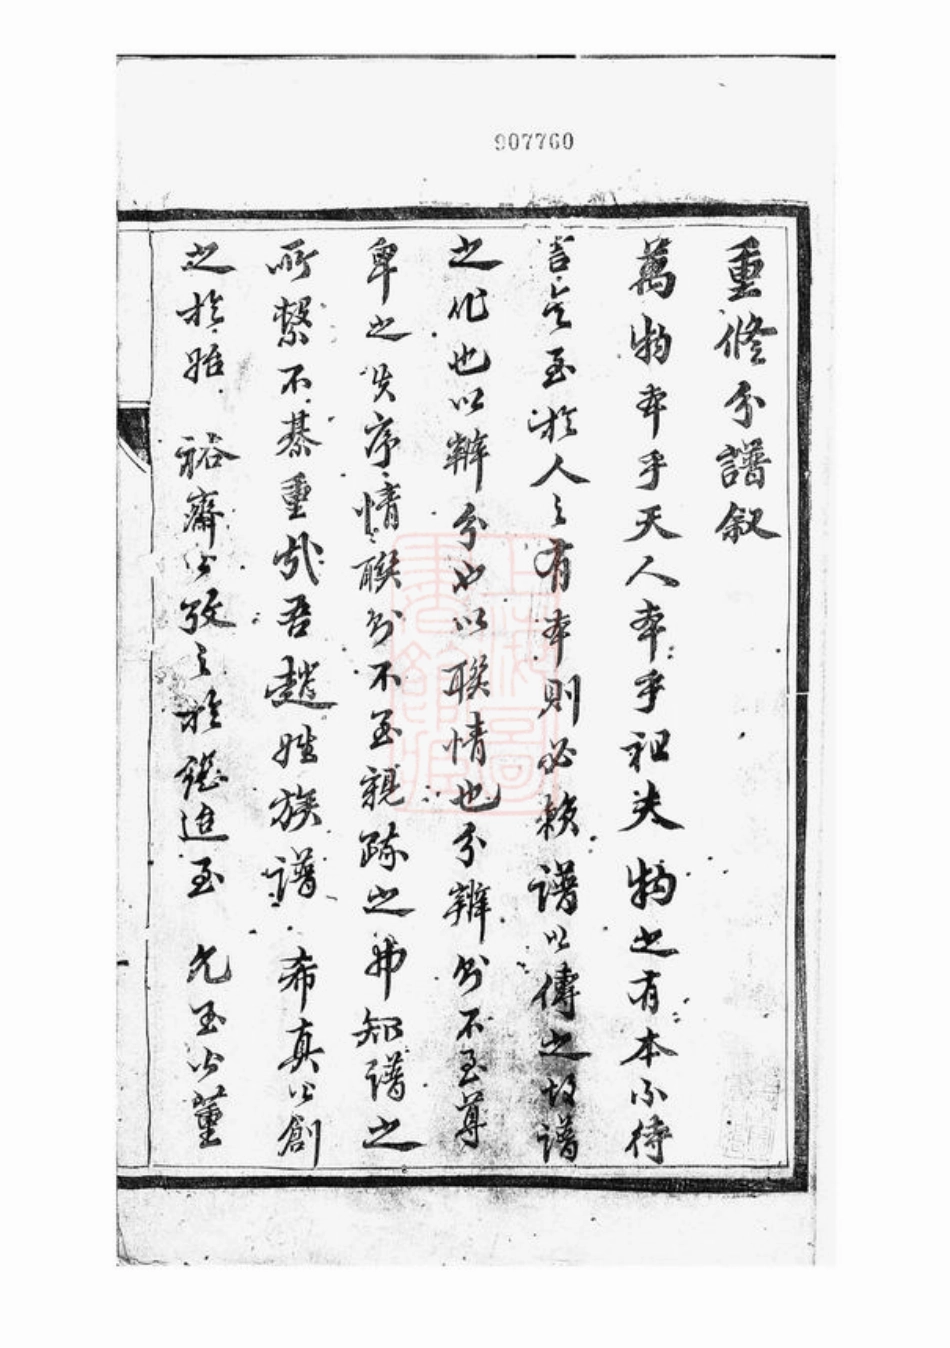 907760
重修分譜叙
萬物本乎天人本乎祖夫物之有本不待
言矣至於人之有本則必賴譜以傳之故譜
之作也以辨分也以聯情也分辨則不至尊
卑之失序情聯則不至親疏之弗知譜之
所繫不綦重哉吾趙姓族譜 希真公創
之於始 裕齋公攷之於後迨至 允玉公董
上海圖書館藏